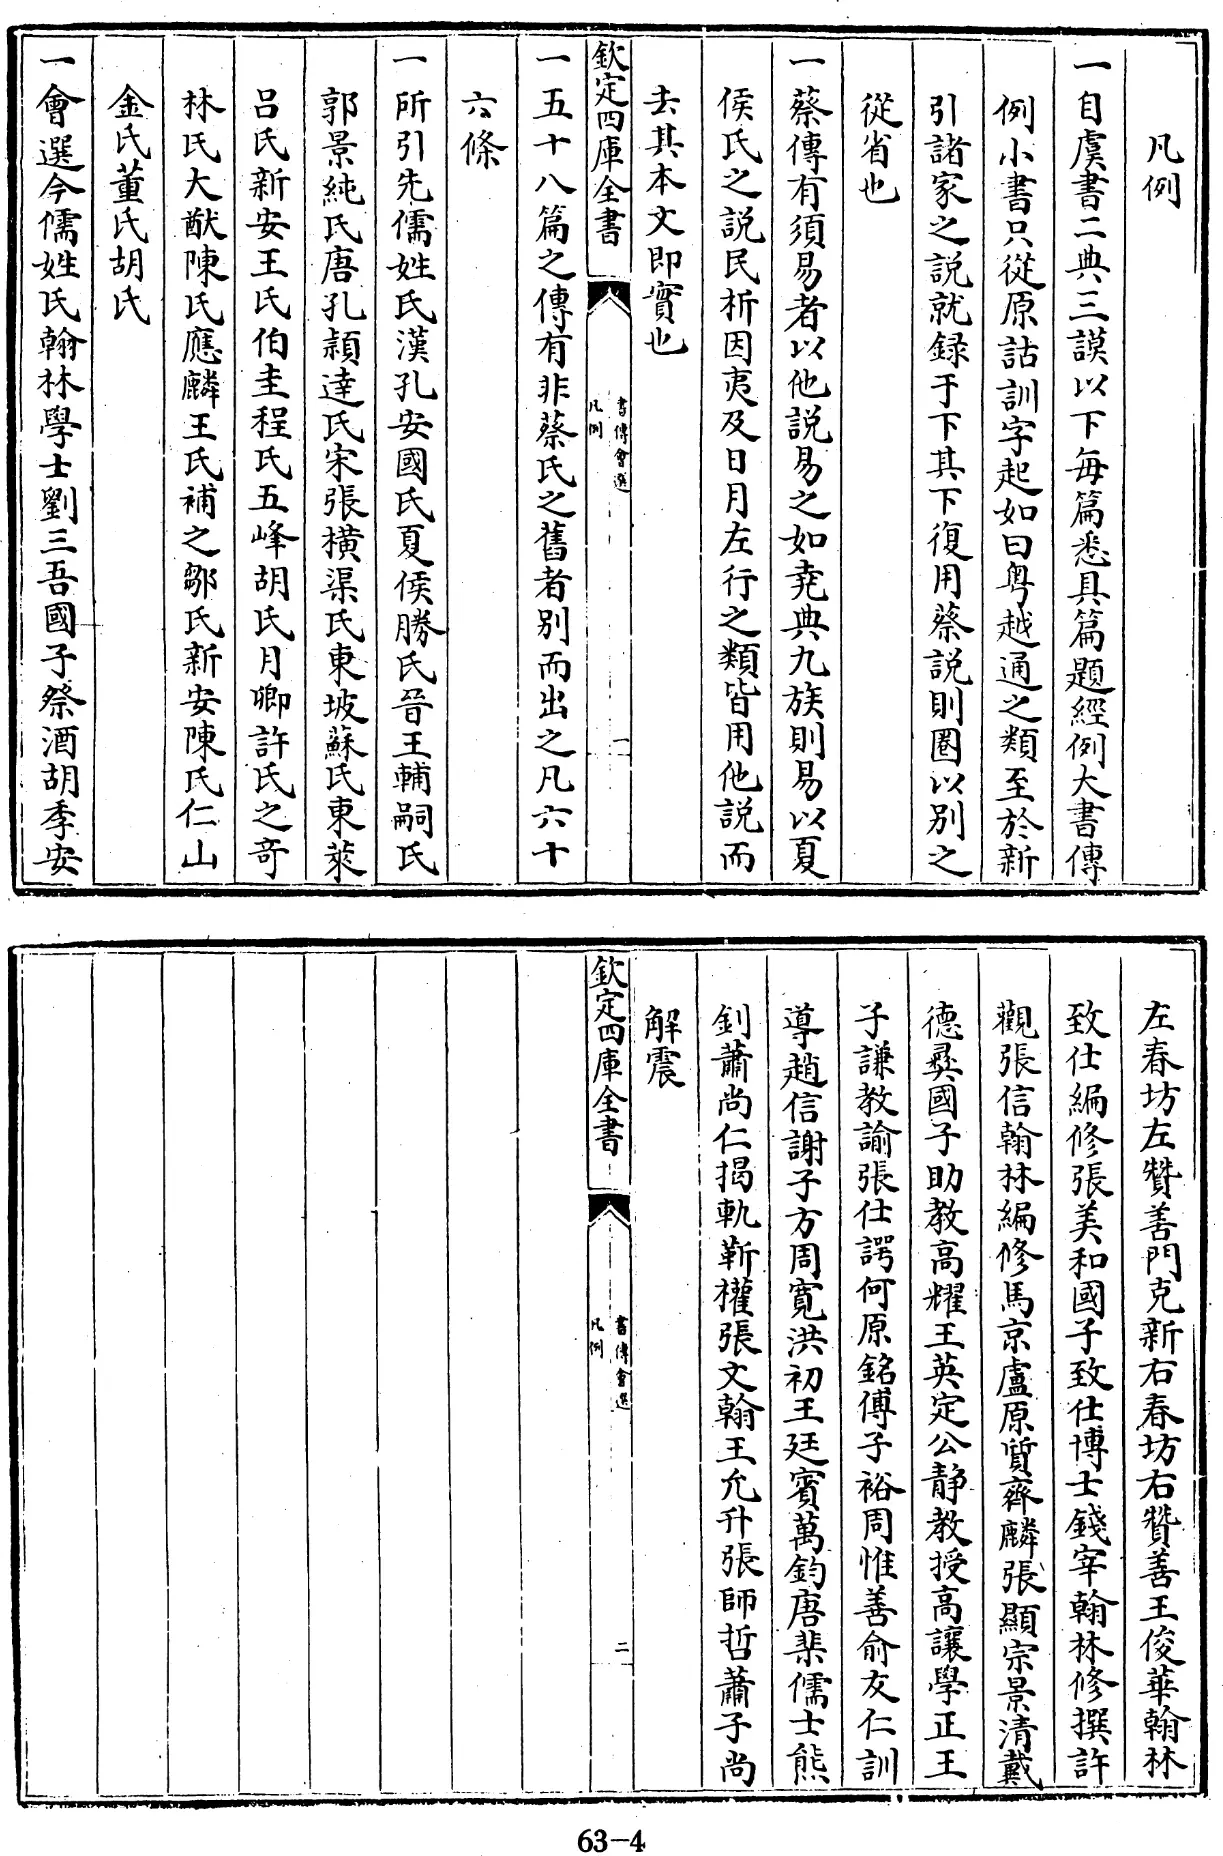 凡例
一自虞書二典三謨以下每篇悉具篇題經例大書傳
例小書只從原詁訓字起如曰粤越通之類至於新
引諸家之説就録于下其下復用蔡説則圏以别之
從省也
一蔡傳有須易者以他説易之如堯典九族則易以夏
侯氏之説民析因夷及日月左行之類皆用他説而
去其本文即實也
欽定四庫全書
書傳會選
凡例
一
一五十八篇之傳有非蔡氏之舊者别而出之凡六十
六條
一所引先儒姓氏漢孔安國氏夏侯勝氏晉王輔嗣氏
郭景純氏唐孔穎達氏宋張橫渠氏東坡蘇氏東萊
吕氏新安王氏伯圭程氏五峰胡氏月卿許氏之奇
林氏大猷陳氏應麟王氏補之鄒氏新安陳氏仁山
金氏董氏胡氏
一會選今儒姓氏翰林學士劉三吾國子祭酒胡季安
左春坊左贊善門克新右春坊右贊善王俊華翰林
致仕編修張美和國子致仕博士錢宰翰林修撰許
觀張信翰林編修馬京盧原質齊麟張顯宗景清戴
德彝國子助教高耀王英定公静教授高讓學正王
子謙教諭張仕諤何原銘傅子裕周惟善俞友仁訓
導趙信謝子方周寛洪初王廷賓萬鈞唐棐儒士熊
釗蕭尚仁揭軌靳權張文翰王允升張師哲蕭子尚
解震
欽定四庫全書
書傳會選
凡例
二
63-4